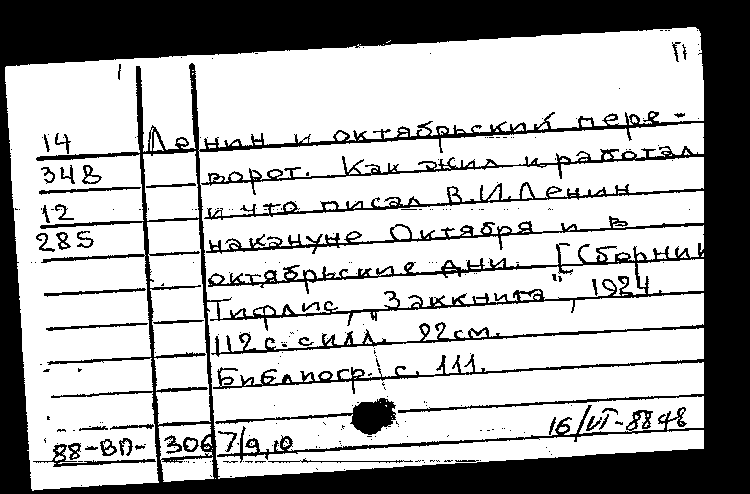 П
14 Ленин и октябрьский пере-
348 ворот. Как жил и работал
12 и что писал В.И.Ленин
285 накануне Октября и в
октябрьские дни. [Сборник
Тифлис, „Заккнига", 1924.
112 с. с илл. 22 см.
Библиогр. с. 111.
88-ВП- 3067/9,10 16/VI-88 48